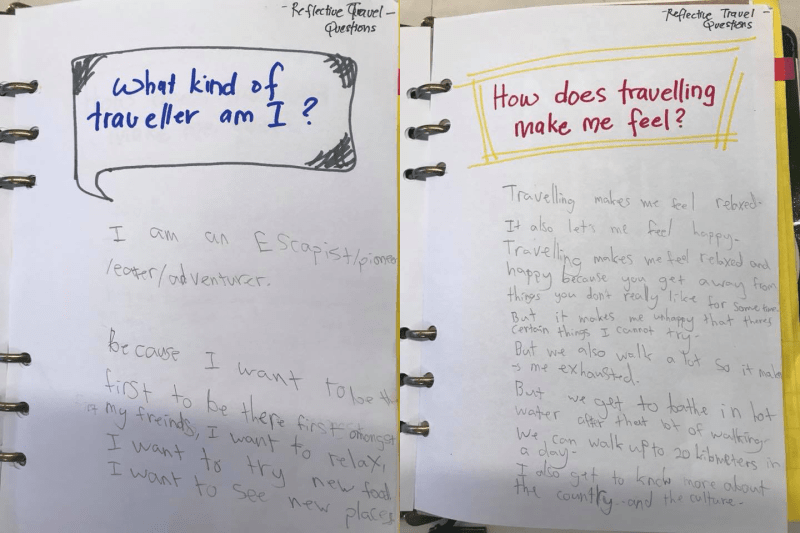 - Reflective Travel -
Questions
What kind of
traveller am I?
I am an Escapist/pioneer
/eater/adventurer.
Because I want to be the
first to be there first amongst
my freinds, I want to relax,
I want to try new food
I want to see new places
- Reflective Travel -
Questions
How does travelling
make me feel?
Travelling makes me feel relaxed.
It also lets me feel happy.
Travelling makes me feel relaxed and
happy because you get away from
things you don't really like for some time.
But it makes me unhappy that theres
certain things I cannot try.
But we also walk a lot so it makes
me exhausted.
But we get to bathe in hot
water after that lot of walking.
We can walk up to 20 kilometers in
a day.
I also get to know more about
the country and the culture.